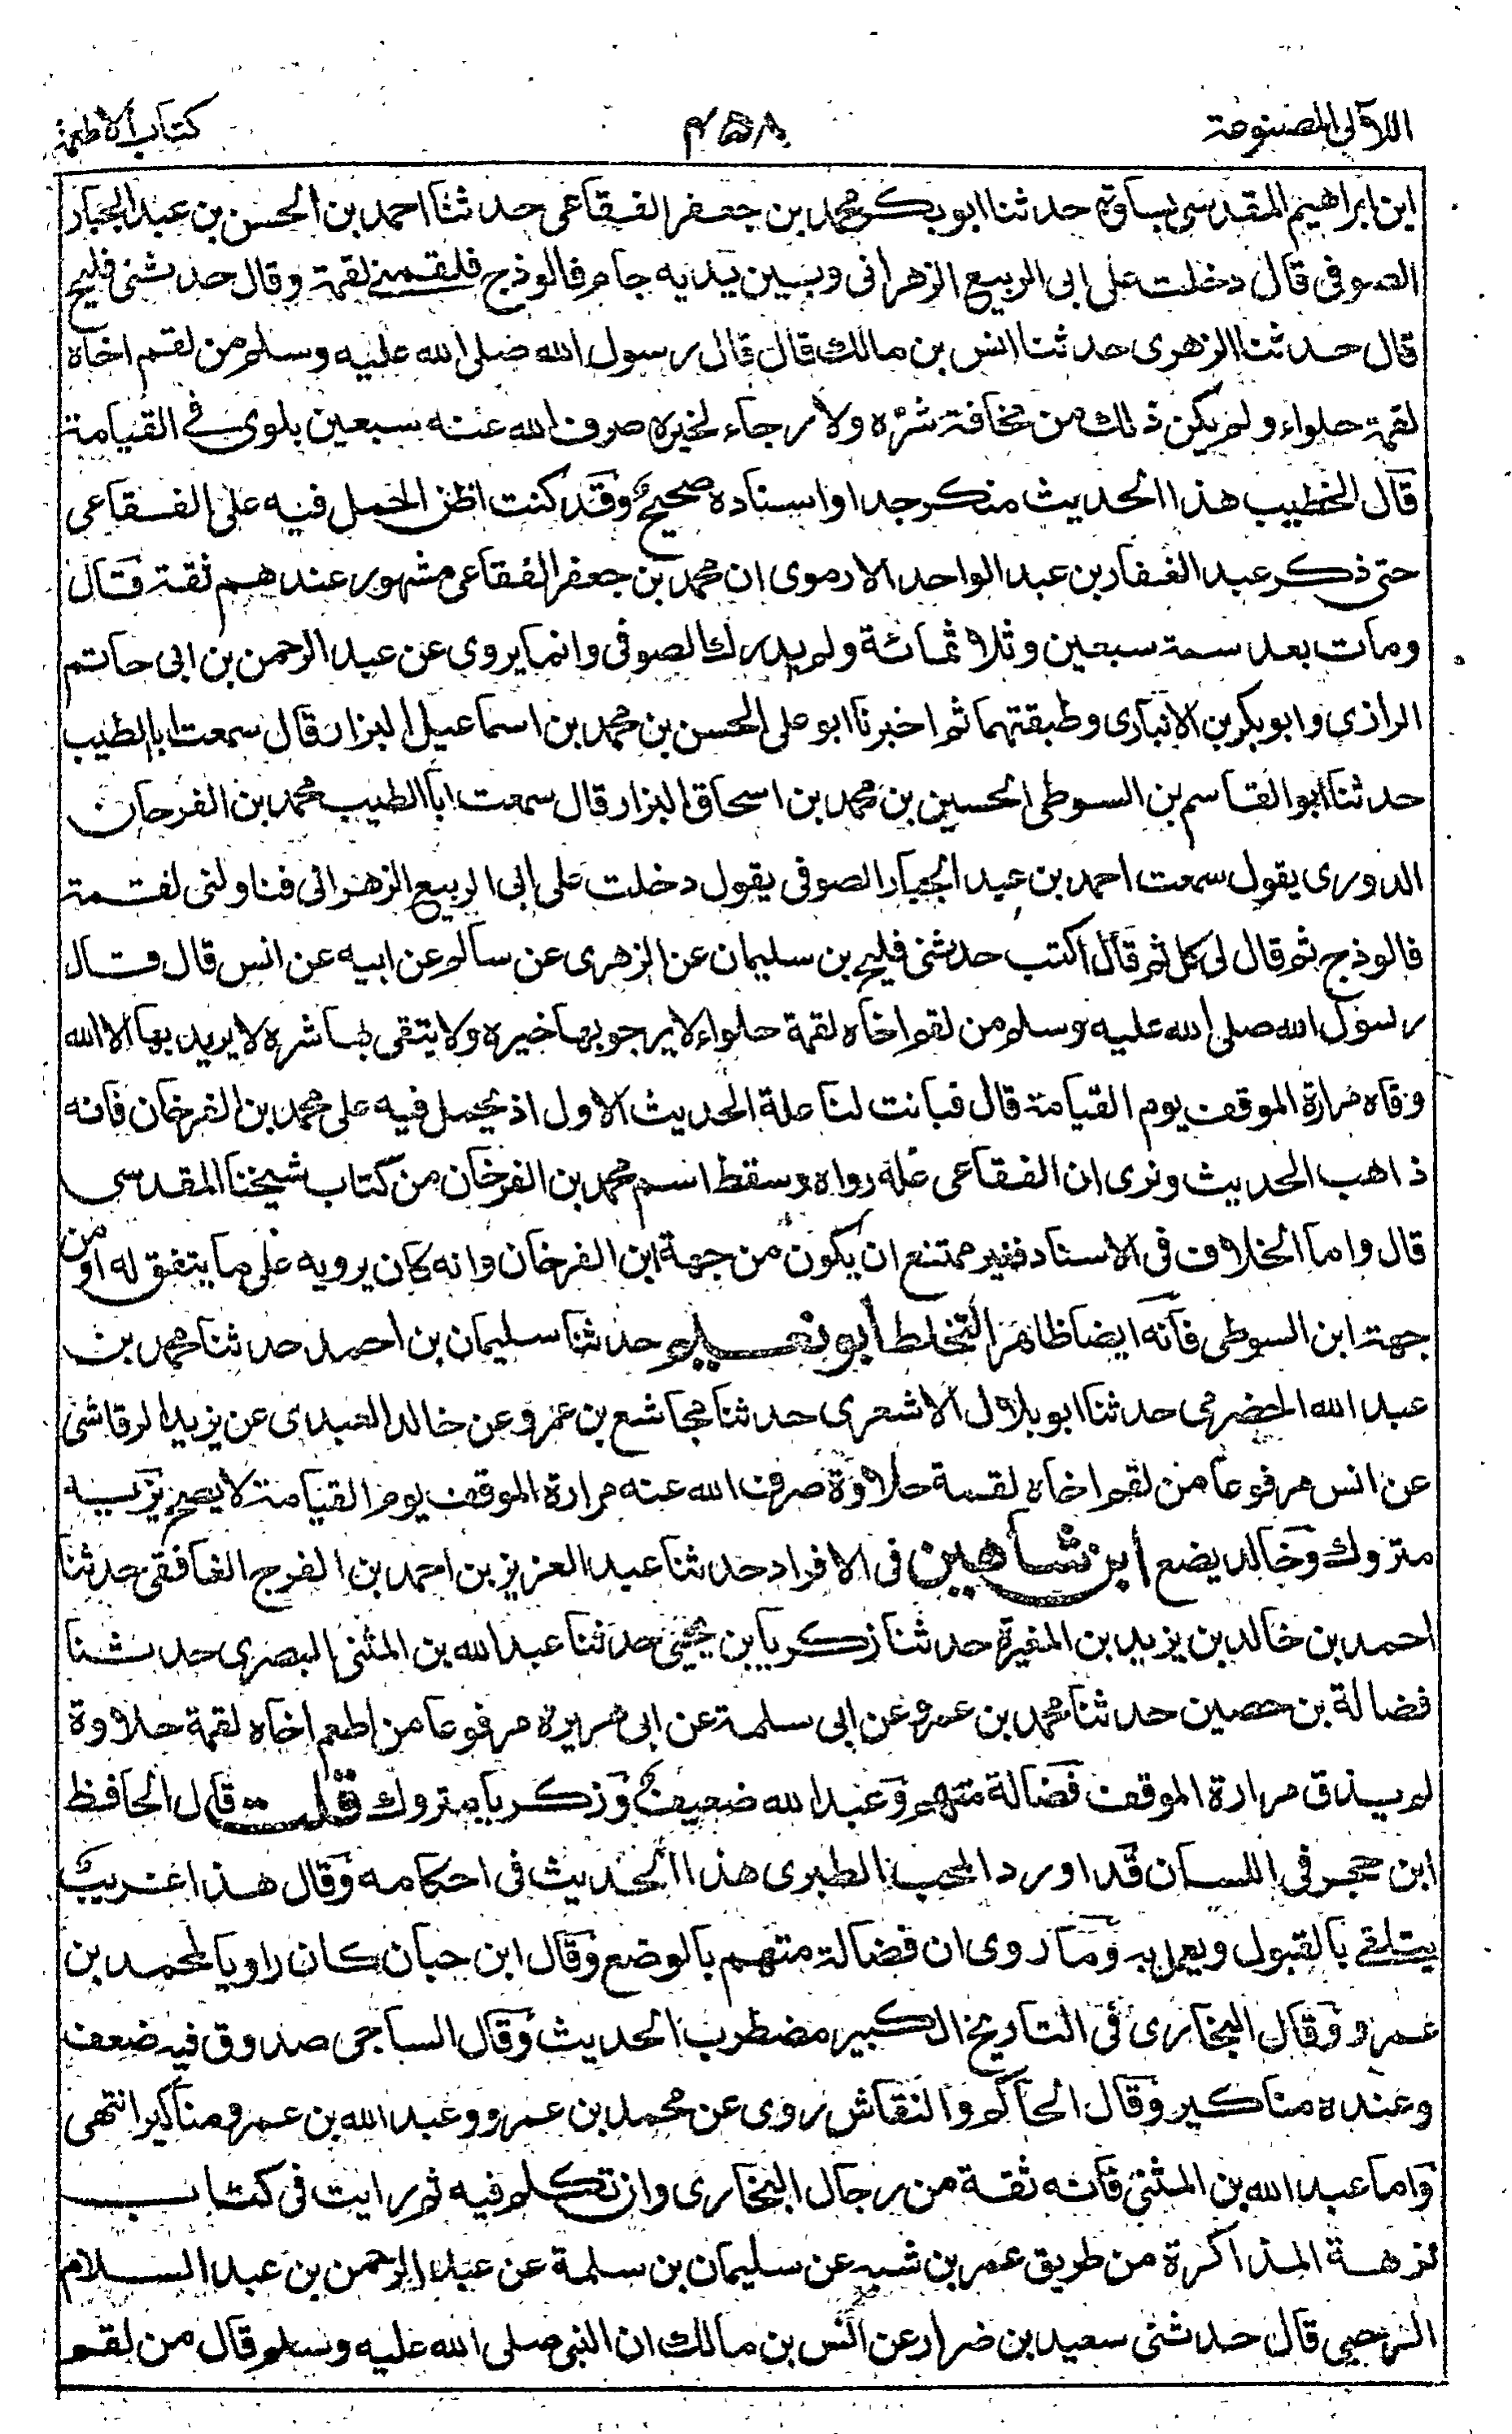 اللآلى المصنوعة ۴۵۸ كتاب الاطعمة
ابن ابراهيم المقدسى بساوة حدثنا ابو بكر محمد بن جعفر الفقاعى حدثنا احمد بن الحسن بن عبد الجبار
الصوفى قال دخلت على ابى الربيع الزهرانى وبين يديه جام فالوذج فلقمنے لقمة وقال حدثنى فليح
قال حدثنا الزهرى حدثنا انس بن مالك قال قال رسول الله صلى الله عليه وسلم من لقم اخاه
لقمة حلواء ولم يكن ذلك من مخافة شره ولا رجاء لخيره صرف الله عنه سبعين بلوى فے القيامة
قال الخطيب هذا الحديث منكر جدا واسناده صحيح وقد كنت اظن الحمل فيه على الفقاعى
حتى ذكر عبد الغفار بن عبد الواحد الارموى ان محمد بن جعفر الفقاعى مشهور عندهم ثقة قال
ومات بعد سنة سبعين وثلاثمائة ولم يدرك الصوفى وانما يروى عن عبد الرحمن بن ابى حاتم
الرازى وابو بكر بن الانبارى وطبقتهما ثم اخبرنا ابو على الحسن بن محمد بن اسماعيل البزار قال سمعت ابا الطيب
حدثنا ابو القاسم بن السوطى الحسين بن محمد بن اسحاق البزار قال سمعت ابا الطيب محمد بن الفرحان
الدورى يقول سمعت احمد بن عبد الجبار الصوفى يقول دخلت على ابى الربيع الزهرانى فناولنى لقمة
فالوذج ثم قال لى كل ثم قال اكتب حدثنى فليح بن سليمان عن الزهرى عن سالم عن ابيه عن انس قال قال
رسول الله صلى الله عليه وسلم من لقم اخاه لقمة حلواء لا يرجو بها خيره ولا يتقى بها شره لا يريد بها الا الله
وقاه مرارة الموقف يوم القيامة قال فبانت لنا علة الحديث الاول اذ يحمل فيه على محمد بن الفرخان فانه
ذاهب الحديث ونرى ان الفقاعى عله رواه وسقط اسم محمد بن الفرخان من كتاب شيخنا المقدسى
قال واما الخلاف فى الاسناد فغير ممتنع ان يكون من جهة ابن الفرخان وانه كان يرويه على ما يتفق له او من
جهة ابن السوطى فانه ايضا ظاهر التخلط ابو نعيم حدثنا سليمان بن احمد حدثنا محمد بن
عبد الله الحضرمى حدثنا ابو بلال الاشعرى حدثنا مجاشع بن عمرو عن خالد العبدى عن يزيد الرقاشى
عن انس مرفوعا من لقم اخاه لقمة حلاوة صرف الله عنه مرارة الموقف يوم القيامة لا يصح يزيد
متروك وخالد يضع ابن شاهين فى الافراد حدثنا عبد العزيز بن احمد بن الفرج الغافقى حدثنا
احمد بن خالد بن يزيد بن المغيرة حدثنا زكريا بن يحيى حدثنا عبد الله بن المثنى البصرى حدثنا
فضالة بن حصين حدثنا محمد بن عمرو عن ابى سلمة عن ابى هريرة مرفوعا من اطعم اخاه لقمة حلاوة
لم يذق مرارة الموقف فضالة متهم وعبد الله ضعيف وزكريا متروك قلت قال الحافظ
ابن حجر فى اللسان قد اورد المحب الطبرى هذا الحديث فى احكامه وقال هذا غريب
يتلقے بالقبول ويعمل به وما روى ان فضالة متهم بالوضع وقال ابن حبان كان راويا لمحمد بن
عمرو وقال البخارى فى التاريخ الكبير مضطرب الحديث وقال الساجى صدوق فيه ضعف
وعنده مناكير وقال الحاكم والنقاش روى عن محمد بن عمرو وعبد الله بن عمرو مناكير انتهى
واما عبد الله بن المثنى فانه ثقة من رجال البخارى وان تكلم فيه ثم رايت فى كتاب
نزهة المذاكرة من طريق عمر بن شبه عن سليمان بن سلمة عن عبد الرحمن بن عبد السلام
قال حدثنى سعيد بن ضرار عن انس بن مالك ان النبى صلى الله عليه وسلم قال من لقم